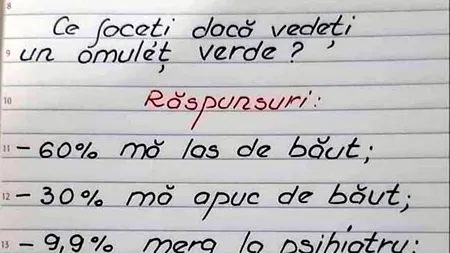 8
Ce faceți dacă vedeți
9 un omuleț verde?
10 Răspunsuri:
11 – 60% mă las de băut;
12 – 30% mă apuc de băut;
13 – 9,9% merg la psihiatru;